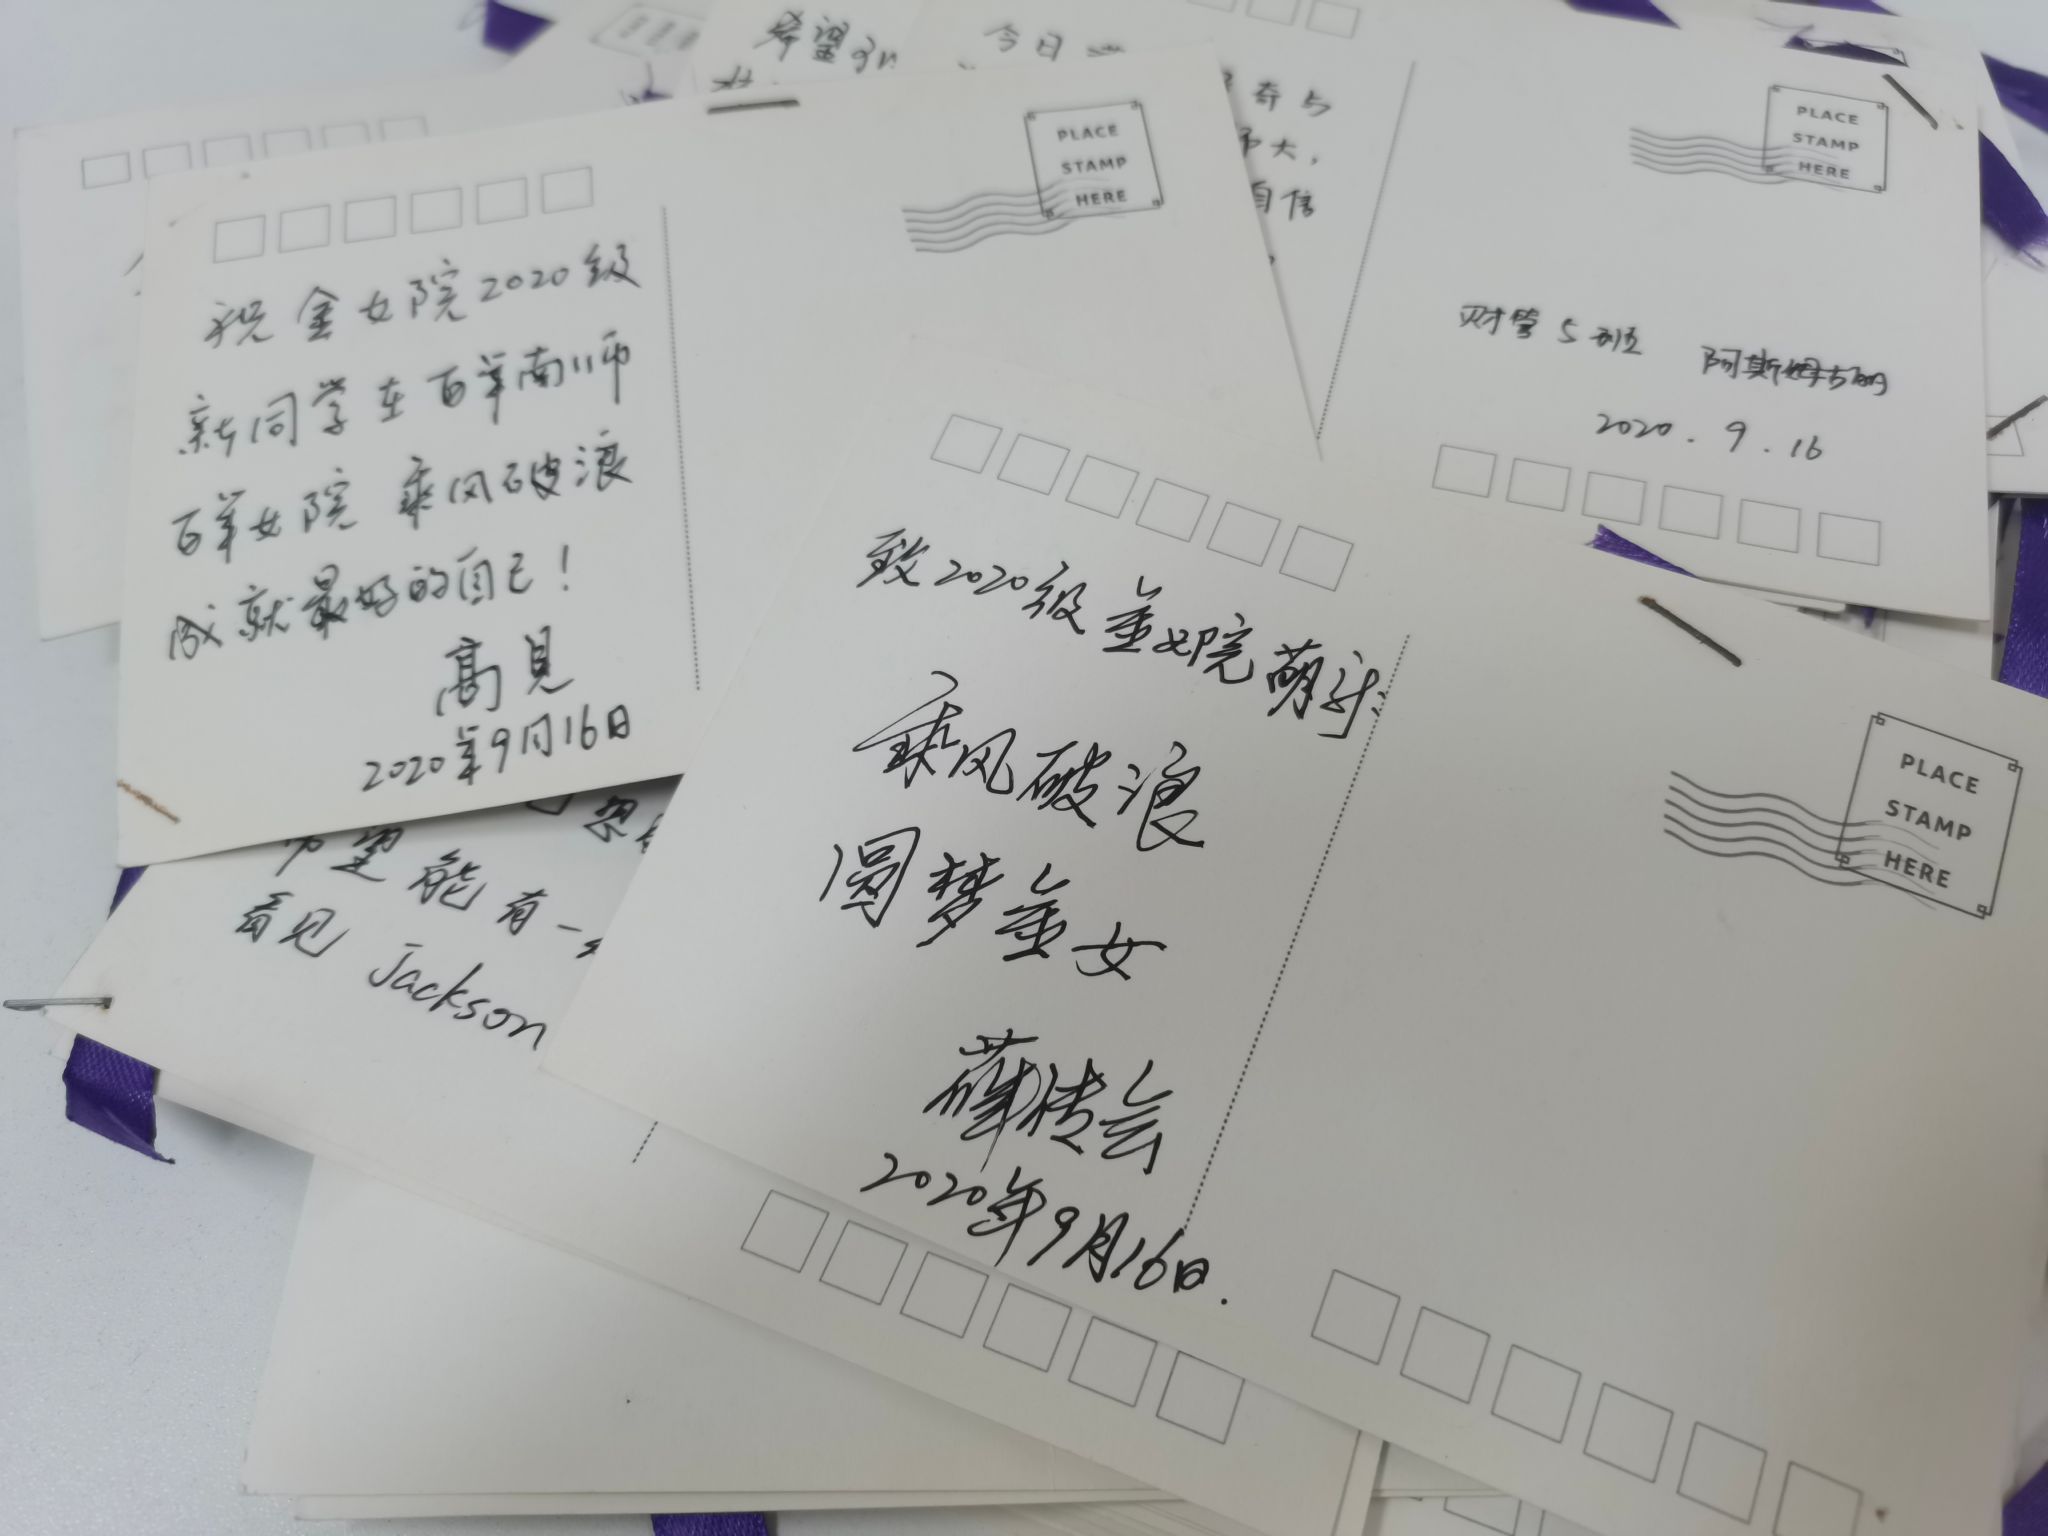 希望
今日
奇与
不大，
自信
PLACE
STAMP
HERE
祝金女院2020级
新同学在百年南师
百年女院 乘风破浪
成就最好的自己！
高見
2020年9月16日
PLACE
STAMP
HERE
财管5班
2020.9.16
希望能有一
看见 Jackson
致2020级金女院萌新:
乘风破浪
圆梦金女
薛传会
2020年9月16日.
PLACE
STAMP
HERE